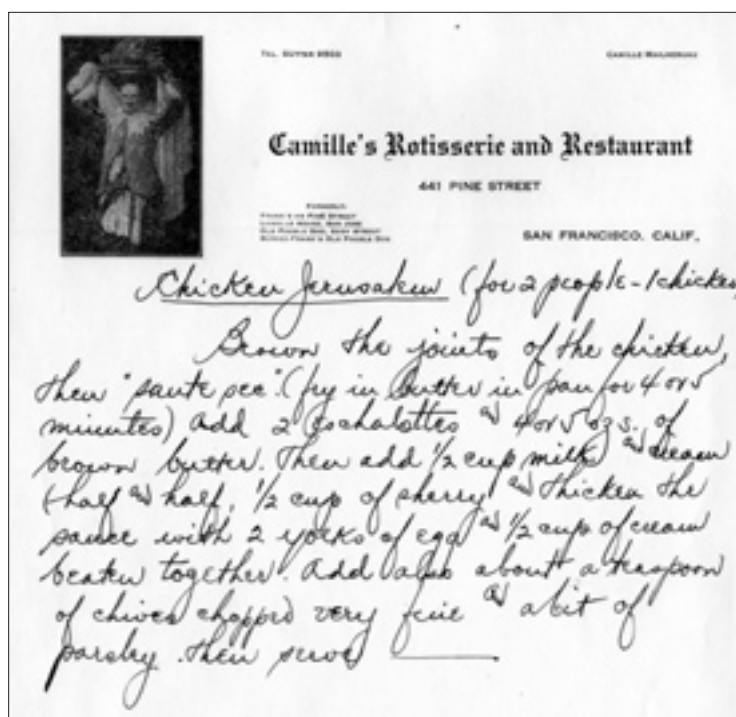 TEL. SUTTER
CAMILLE MAILHEBUAU
Camille's Rotisserie and Restaurant
441 PINE STREET
FORMERLY:
SAN FRANCISCO, CALIF.
Chicken Jerusalem (for 2 people - 1 chicken
Brown the joints of the chicken,
then "saute sec". (fry in butter in pan for 4 or 5
minutes) add 2 eschalottes & 4 or 5 ozs. of
brown butter. Then add 1/2 cup milk & cream
(half & half, 1/2 cup of sherry & thicken the
sauce with 2 yorks of egg & 1/2 cup of cream
beaten together. Add also about a teaspoon
of chives chopped very fine & a bit of
parsley. Then serve